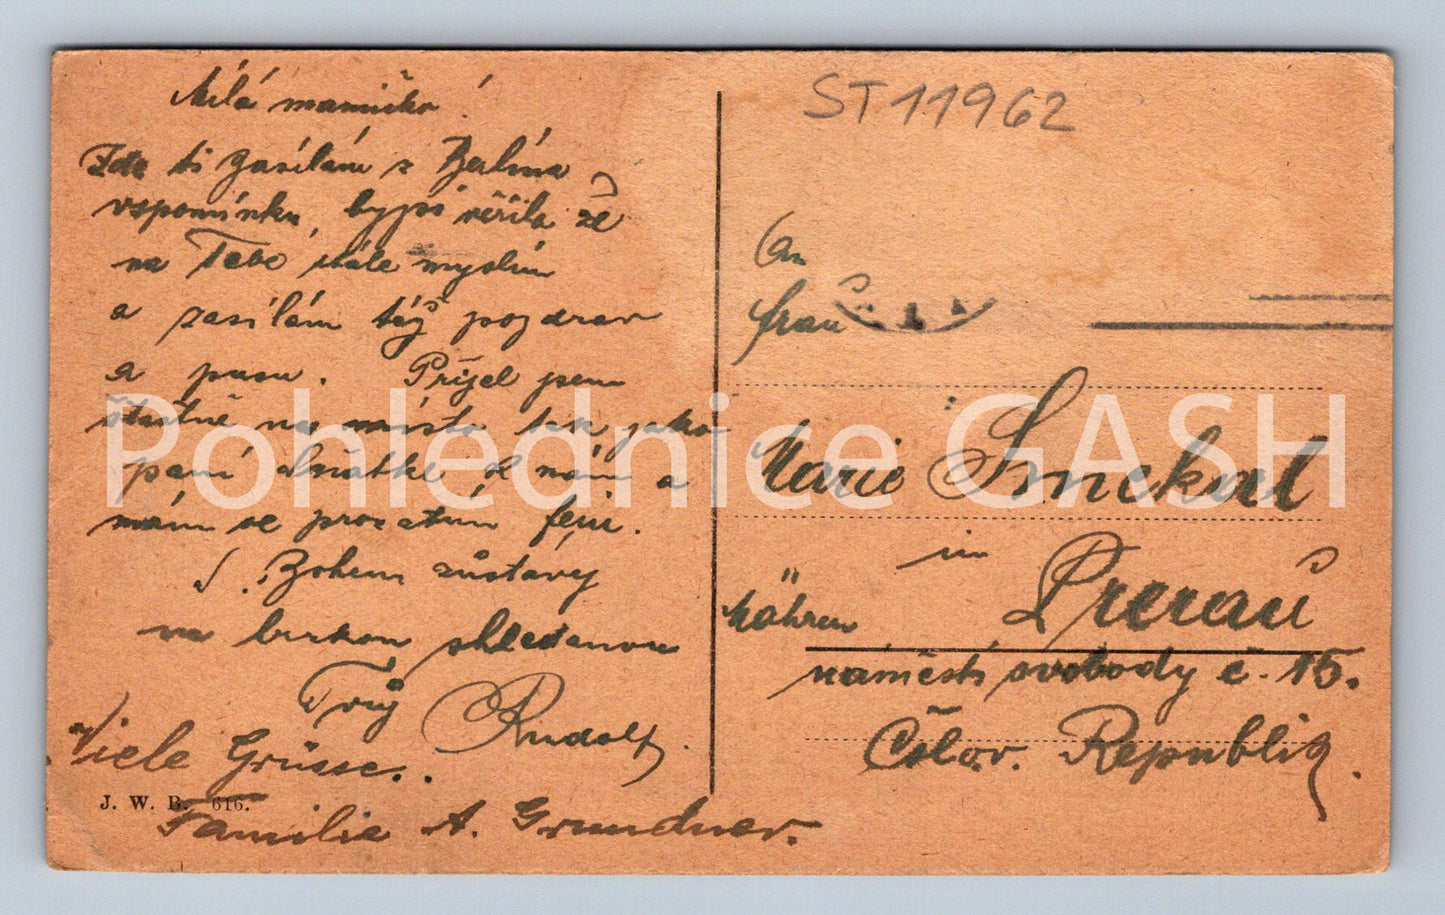 Milá mamičko!
Zde ti zasílám z Berlína
vspomínku, bys věřila že
na Tebe stále myslím
a zasílám též pozdrav
a pusu. Přijel jsem
šťastně na místo tak jako
paní a
mám se prozatím fein.
S Bohem zůstávej
na brzkou shledanou
Tvůj Rudolf.
Viele Grüsse.
J. W. B. 616.
Familie A. Grundner.
ST 11962
An
Frau
Marie Smekal
in Prerau
Mähren
náměstí svobody č. 15.
Čslov. Republik.
Pohlednice GASH